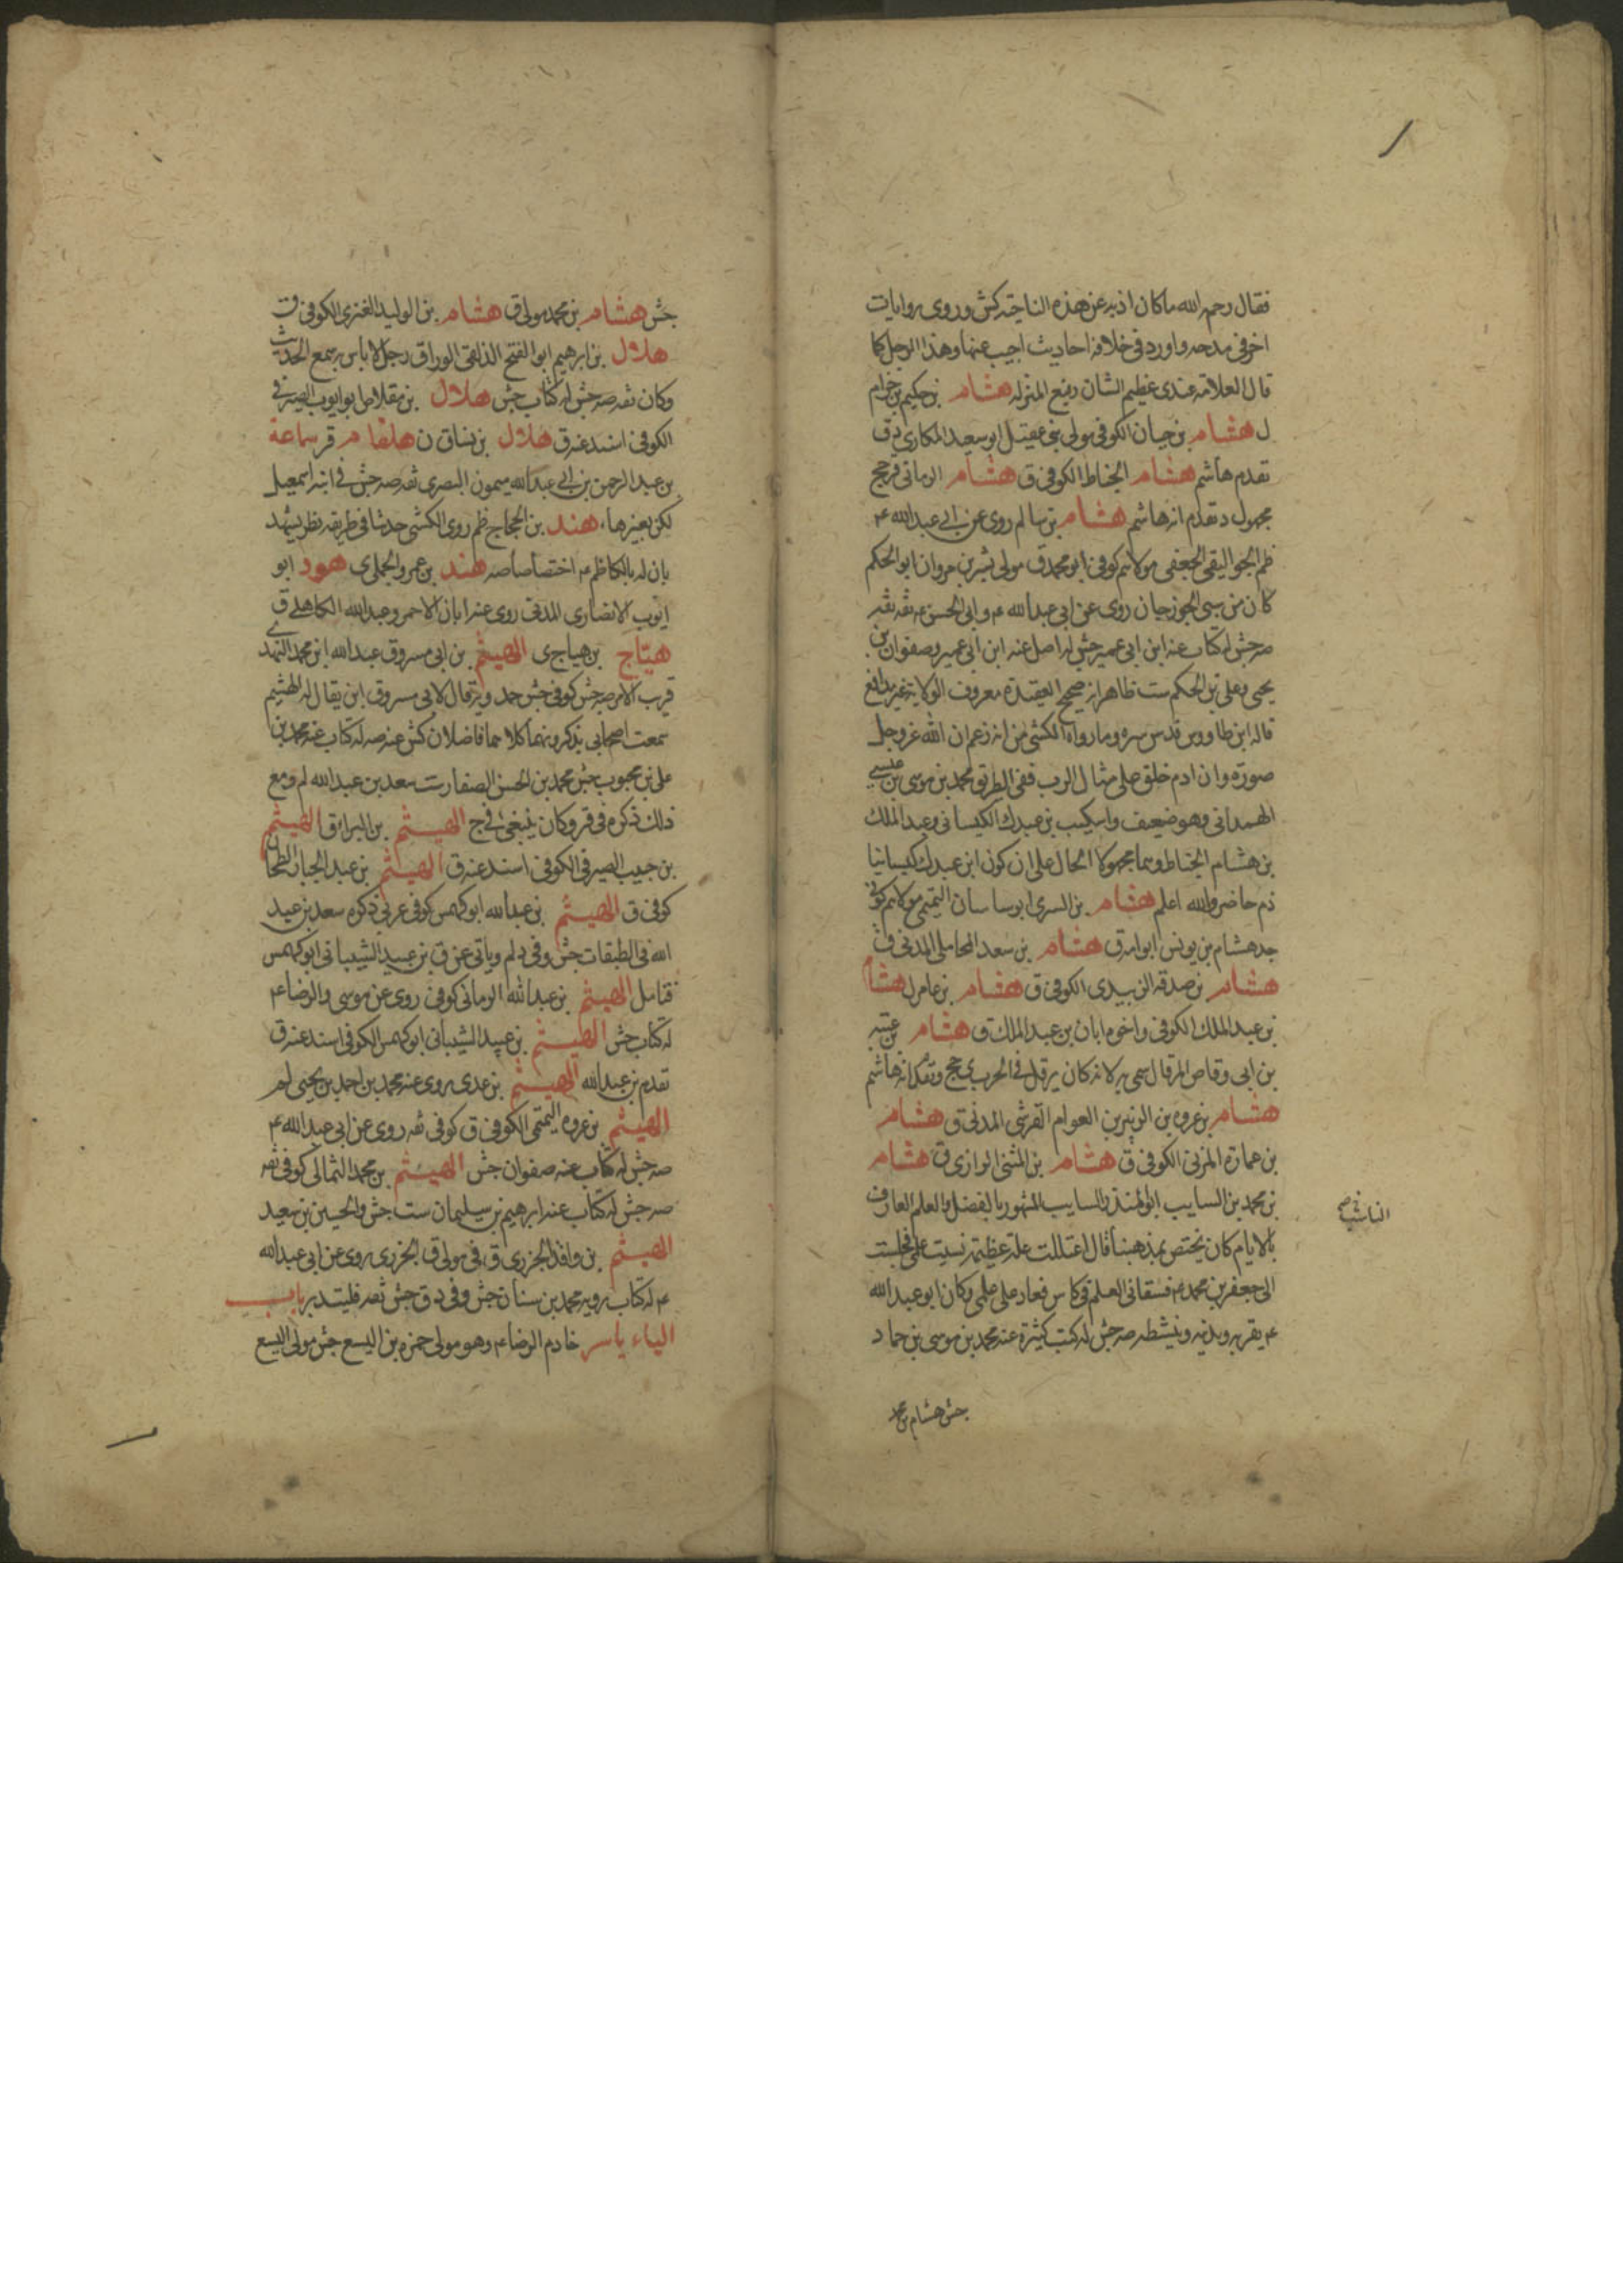 فقال رحمه الله ما كان اذبه عن هذه الناحية كش وروى روايات
اخر فى مدحه واورد فى خلافه احاديث اجيب عنها وهذا الرجل كما
قال العلامه عندى عظيم الشان رفيع المنزله هشام بن حكيم بن حزام
ل هشام بن حيان الكوفى مولى بنى عقيل ابو سعيد المكارى ق
تقدم هاشم هشام الخياط الكوفى ق هشام الرمانى قر جخ
مجهول د تقدم انه هاشم هشام بن سالم روى عن ابى عبد الله ع
ظم الجواليقى الجعفى مولاهم كوفى ابو محمد ق مولى بشر بن مروان ابو الحكم
كان من سبى الجوزجان روى عن ابى عبد الله ع وابى الحسن ع ثقه ثقه
صه جش له كتاب عنه ابن ابى عمير جش له اصل عنه ابن ابى عمير وصفوان بن
يحيى وعلى بن الحكم ست ظاهرا نه صحيح العقيدة معروف الولاية غير مدافع
قاله ابن طاووس قدس سره وما رواه الكشى من انه زعم ان الله عز وجل
صورة وان ادم خلق على مثال الرب ففى الطريق محمد بن موسى بن عيسى
الهمدانى وهو ضعيف واسكيب بن عبدك الكيسانى وعبد الملك
بن هشام الخياط وهما مجهولا الحال على ان كون ابن عبدك كيسانيا
ذم حاضر والله اعلم هشام بن السرى ابو ساسان التميمى مولاهم كوفى
جد هشام بن يونس ابوامه ق هشام بن سعد المحاملى المدنى ق
هشام بن صدقه الزبيدى الكوفى ق هشام بن عامر ل هشام
بن عبد الملك الكوفى واخوه ابان بن عبد الملك ق هشام بن عتبه
بن ابى وقاص المرقال سمى به لانه كان يرقل فى الحرب ى جخ وتقدم انه هاشم
هشام بن عروه بن الزبير بن العوام القرشى المدنى ق هشام
بن عمارة المزنى الكوفى ق هشام بن المثنى الرازى ق هشام
بن محمد بن السايب ابو المنذر السايب المشهور بالفضل والعلم العارف
الناسب صح
بالايام كان يختص بمذهبنا قال اعتللت علة عظيمة نسيت علمى فجلست
الى جعفر بن محمد ع فسقانى العلم فى كاس فعاد على علمى وكان ابو عبد الله
ع يقربه ويدنيه وينشطه صه جش له كتب كثيرة عنه محمد بن موسى بن حماد
جش هشام بن محمد
جش هشام بن محمد مولى ق هشام بن الوليد العنزى الكوفى ق
هلال بن ابرهيم ابو الفتح الدلفى الوراق رجل لا باس به سمع الحديث
وكان ثقه صه جش له كتاب جش هلال بن مقلاص ابو ايوب الصيرفى
الكوفى اسند عنه ق هلال بن نساق ن هلقام قر سماعة
بن عبد الرحمن بن ابى عبد الله ميمون البصرى ثقه صه جش فى ابنه اسمعيل
لكن بغيرها هند بن الحجاج ظم روى الكشى حديثا فى طريقه نظر يشهد
بان له بالكاظم ع اختصاصا صه هند بن عمرو الجملى ى هود ابو
ايوب الانصارى المدنى روى عنه ابان الاحمر وعبد الله الكاهلى ق
هياج بن هياج ى الهيثم بن ابى مسروق عبد الله ابن محمد النهدى
قريب الامر صه جش كوفى جش حمدويه قال لابى مسروق ابن يقال له الهيثم
سمعت اصحابى يذكرونهما كلاهما فاضلان كش عنه صه له كتاب عنه محمد بن
على بن محبوب جش محمد بن الحسن الصفار ست سعد بن عبد الله لم ومع
ذلك ذكره فى قر وكان ينبغى فى ج الهيثم بن البراء ق الهيثم
بن حبيب الصيرفى الكوفى اسند عنه ق الهيثم بن عبد الجبار الطحان
كوفى ق الهيثم بن عبد الله ابو كهمس كوفى عربى ذكره سعد بن عبد
الله فى الطبقات جش وفى د لم وياتى عن ق بن عبيد الشيبانى ابو كهمس
فتامل الهيثم بن عبد الله الرمانى كوفى روى عن موسى والرضا ع
له كتاب جش الهيثم بن عبيد الشيبانى ابو كهمس الكوفى اسند عنه ق
تقدم بن عبد الله الهيثم بن عدى روى عنه محمد بن احمد بن يحيى لم
الهيثم بن عروه التيمى الكوفى ق كوفى ثقه روى عن ابى عبد الله ع
صه جش له كتاب عنه صفوان جش الهيثم بن محمد الثمالى كوفى ثقه
صه جش له كتاب عنه ابرهيم بن سليمان ست جش والحسين بن سعيد
الهيثم بن واقد الجزرى ق فى مولى ق الجزرى روى عن ابى عبد الله
ع له كتاب يرويه محمد بن سنان جش وفى د ق جش ثقه فليتدبر باب
الياء ياسر خادم الرضا ع وهو مولى حمزه بن اليسع جش مولى اليسع